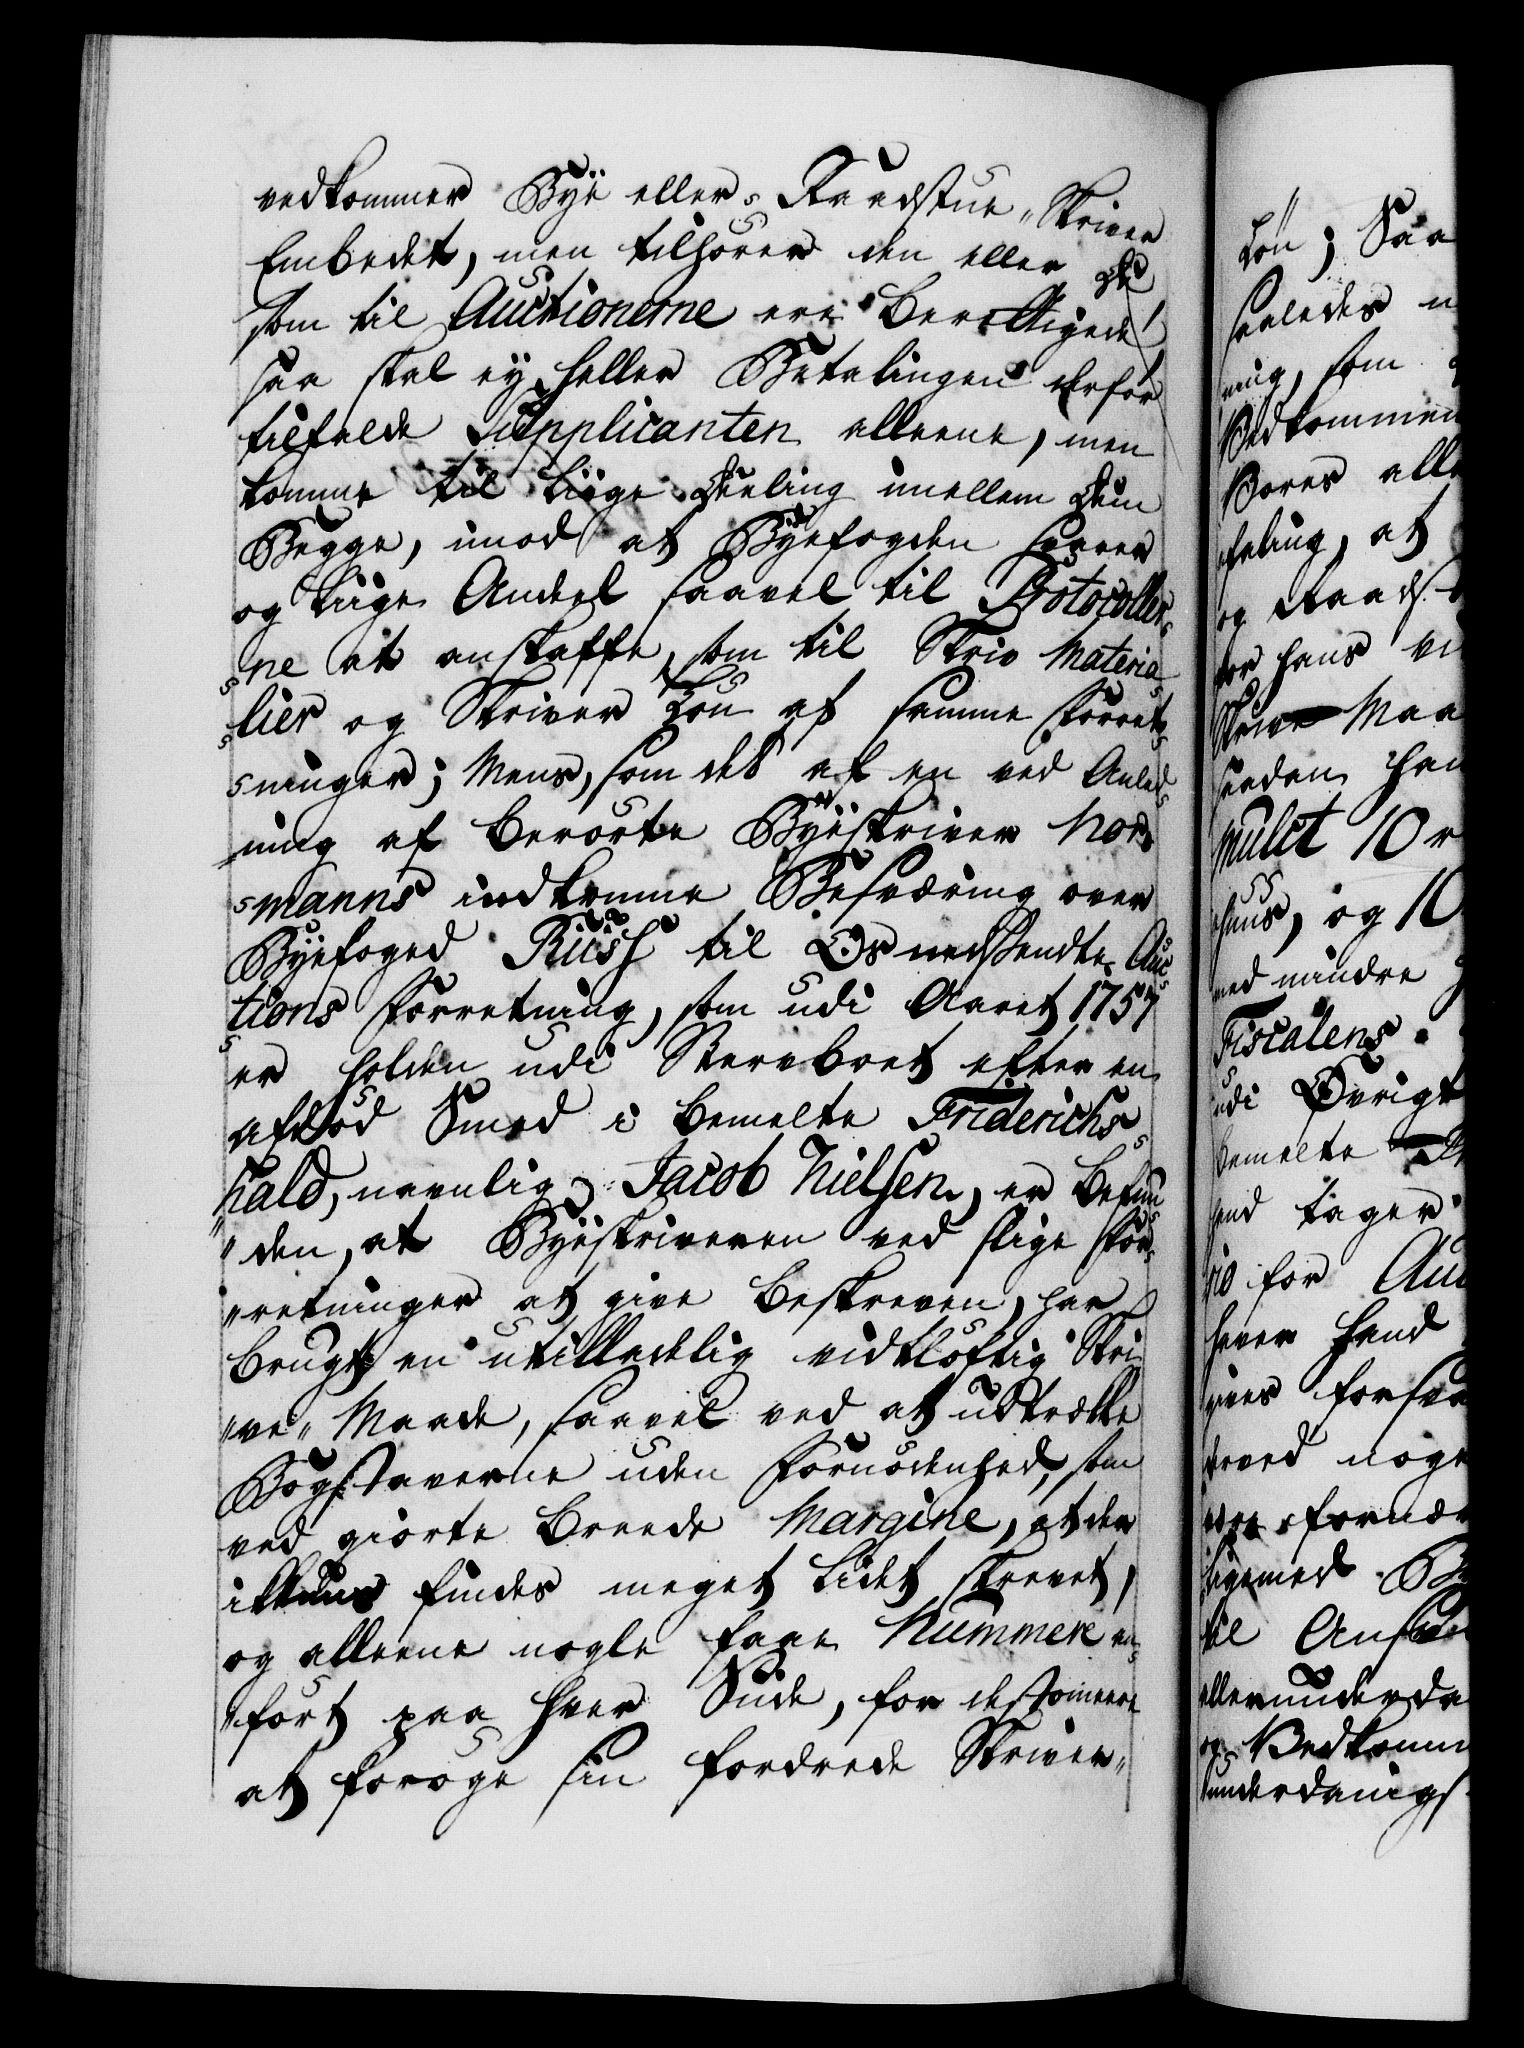 vedkommer Bye eller Raadstue„Skriver
Embedet, men tilhører den eller de
som til Auctionerne ere berettigede,
saa skal ey heller Betalingen derfor
tilfalde Supplicanten alleene, men
komme til liige Deeling imellem dem
Begge, imod at Byefogden svarer
og liige Andeel saavel til Protocoller
ne at anskaffe, som til Skriv Materia
lier og Skriver Løn af samme Forret
ninger; Mens, som det af en ved Anled
ning af berørte Byeskriver Nor
manns indkomne Besværing over
Byefoged Riis til Os nedsendte Auc
tions Forretning, som udi Aaret 1757
er holden udi Stervboet efter en
afdød Smed i bemelte Friderichs
hald, navnlig Jacob Nielsen, er befun
den, at Byeskriveren ved slige For
retninger at give beskreven, har
brugt en utilladelig vidtløftig Skri
ve„Maade, saavel ved at udtrække
Bogstaverne uden Fornødenhed, som
ved giorte breede Margine, at der
ikkuns findes meget lidet skrevet,
og alleene nogle faae Nummere an
ført paa hver Side, for destomeere
at forøge sin fordrede Skriver„
Løn; Saa
saaledes
ning, som
Vedkommen
Vores alle
faling, at
og Raads
for hans
Skrive Maa
saadan han
Mulct 10 r
huus, og 10
med mindre
Fiscalens
udi Øvrigt
bemelte
hand tager
rio for Auc
haver hand
gives forsva
derved noge
være fornær
ligemed By
til Ansøg
allerunderda
og Vedkomm
underdanigs